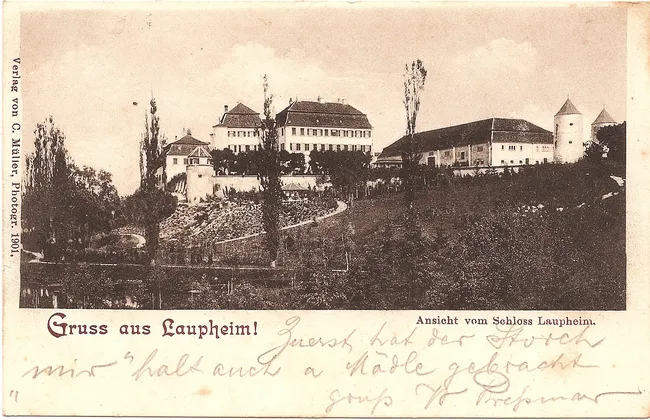 Verlag von C. Müller, Photogr. 1901.
Gruss aus Laupheim!
Ansicht vom Schloss Laupheim.
Zuerst hat der Storch
mir halt auch a Mädle gebracht
gruß